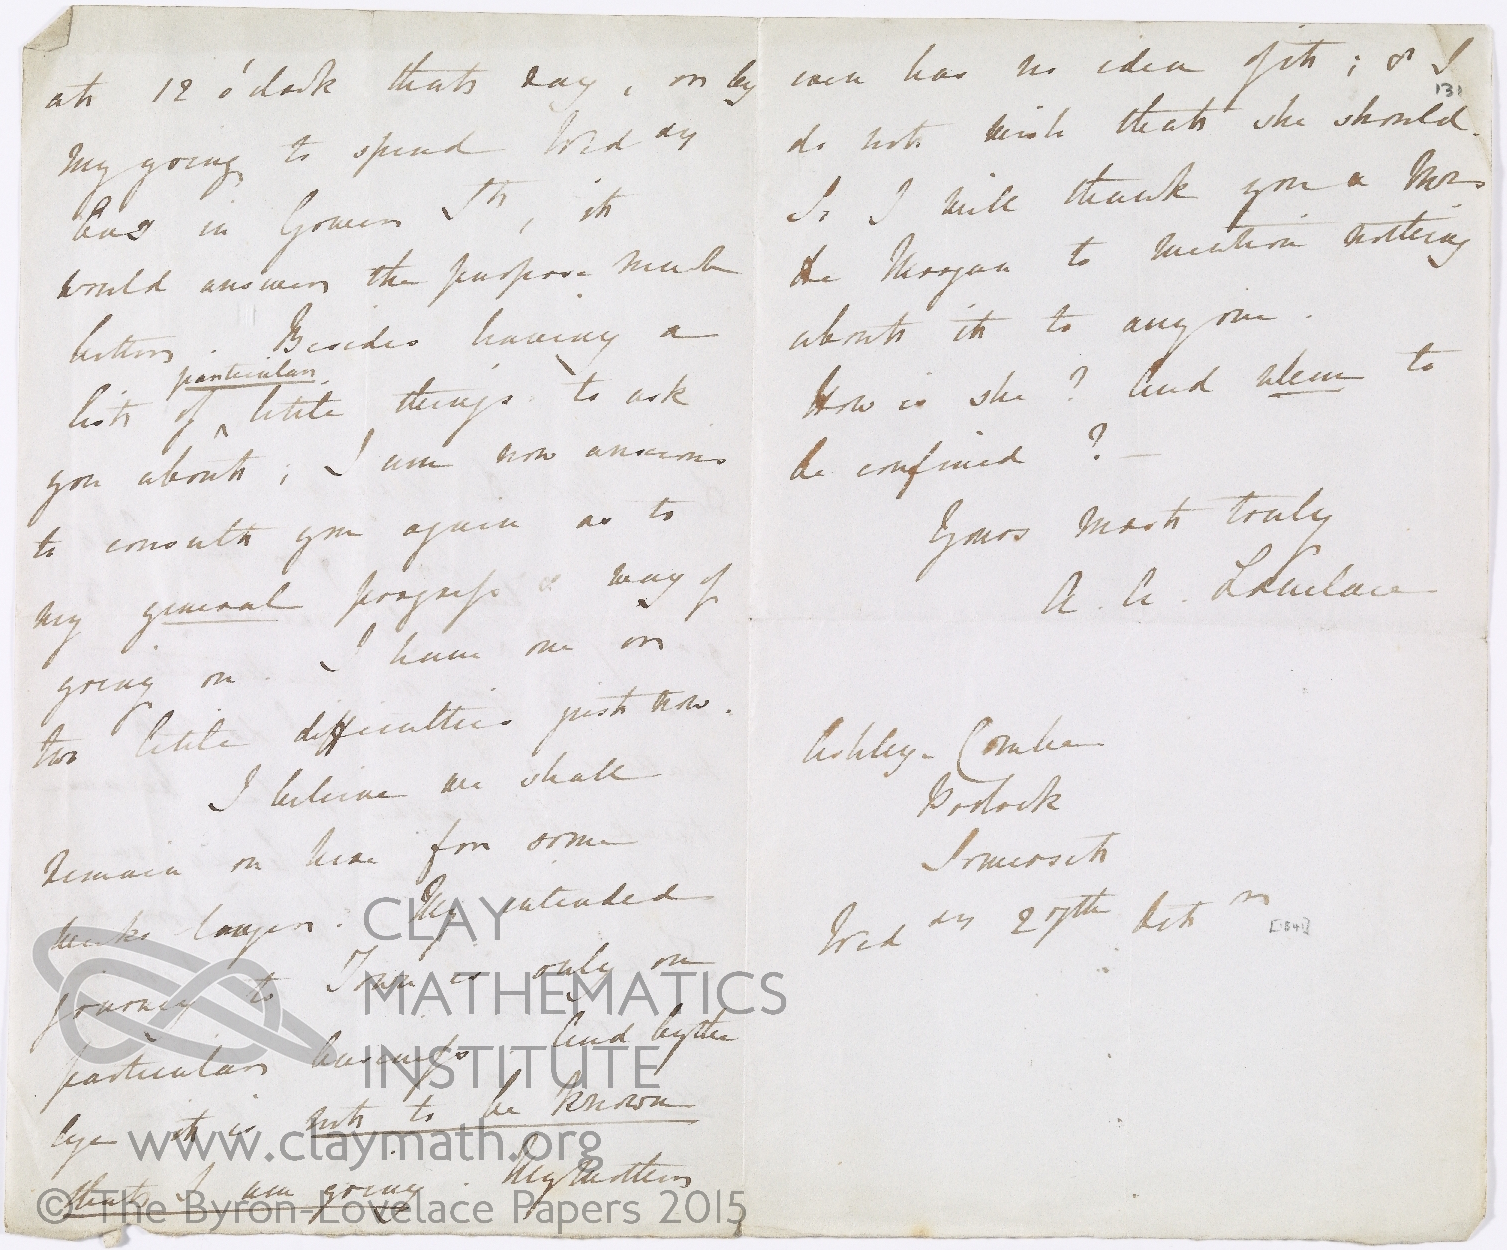 at 12 o'clock that day, or by
my going to spend Wed dy
Eveg in Gower St, it
would answer the purpose much
better. Besides having a
particular
list of ^ little things to ask
you about; I am now anxious
to consult you again as to
my general progress & way of
going on. I have one or
two little difficulties just now.
I believe we shall
remain on here for some
weeks longer. My intended
journey to Town is only on
particular business. And by the
bye it is not to be known
that I am going. My Mother
even has no idea of it; & I
131
do not wish that she should.
So I will thank you & Mrs
De Morgan to mention nothing
about it to any one.
How is she? And when to
be confined? —
Yours most truly
A. A. Lovelace
Ashley-Combe
Porlock
Somerset
Wed dy 27th Oct r
[1841]
CLAY
MATHEMATICS
INSTITUTE
www.claymath.org
© The Byron-Lovelace Papers 2015